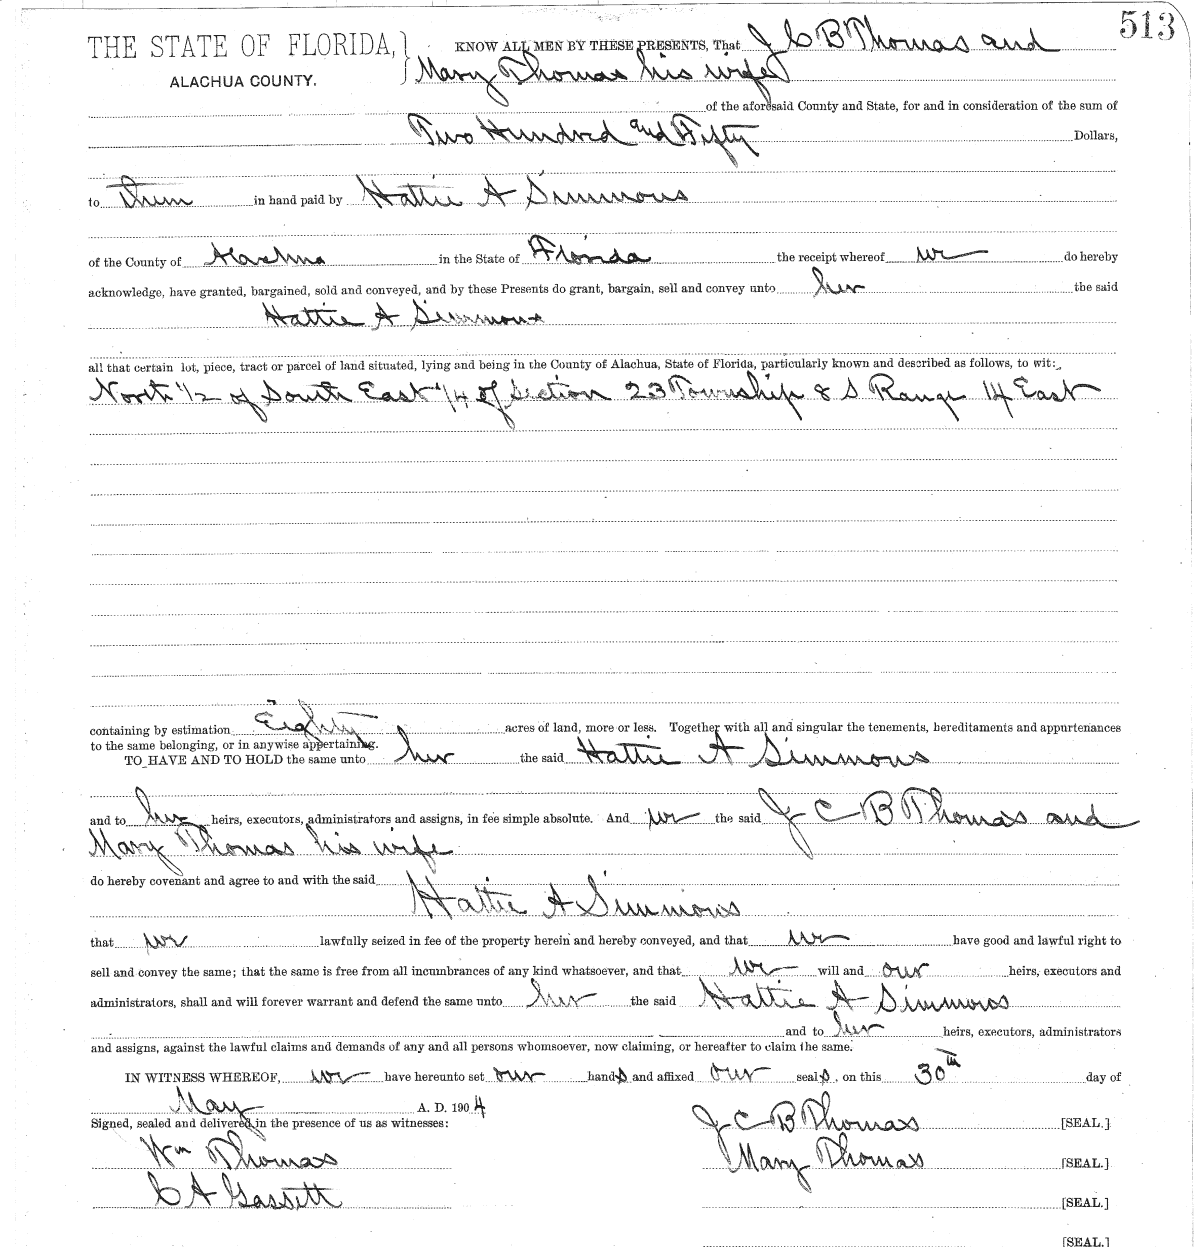 513
THE STATE OF FLORIDA, } KNOW ALL MEN BY THESE PRESENTS, That J C B Thomas and
ALACHUA COUNTY. Mary Thomas his wife
of the aforesaid County and State, for and in consideration of the sum of
Two Hundred and Fifty Dollars,
to them in hand paid by Hattie A Simmons
of the County of Alachua in the State of Florida the receipt whereof we do hereby
acknowledge, have granted, bargained, sold and conveyed, and by these Presents do grant, bargain, sell and convey unto her the said
Hattie A Simmons
all that certain lot, piece, tract or parcel of land situated, lying and being in the County of Alachua, State of Florida, particularly known and described as follows, to wit:
North 1/2 of South East 1/4 of Section 23 Township 8 S Range 14 East
containing by estimation Eighty acres of land, more or less. Together with all and singular the tenements, hereditaments and appurtenances
to the same belonging, or in anywise appertaining.
TO HAVE AND TO HOLD the same unto her the said Hattie A Simmons
and to her heirs, executors, administrators and assigns, in fee simple absolute. And we the said J C B Thomas and
Mary Thomas his wife
do hereby covenant and agree to and with the said
Hattie A Simmons
that we lawfully seized in fee of the property herein and hereby conveyed, and that we have good and lawful right to
sell and convey the same; that the same is free from all incumbrances of any kind whatsoever, and that we will and our heirs, executors and
administrators, shall and will forever warrant and defend the same unto her the said Hattie A Simmons
and to her heirs, executors, administrators
and assigns, against the lawful claims and demands of any and all persons whomsoever, now claiming, or hereafter to claim the same.
IN WITNESS WHEREOF, we have hereunto set our hands and affixed our seals, on this 30th day of
May A. D. 1904
Signed, sealed and delivered in the presence of us as witnesses: J C B Thomas [SEAL.]
Wm Thomas Mary Thomas [SEAL.]
C A Gassett [SEAL.]
[SEAL.]